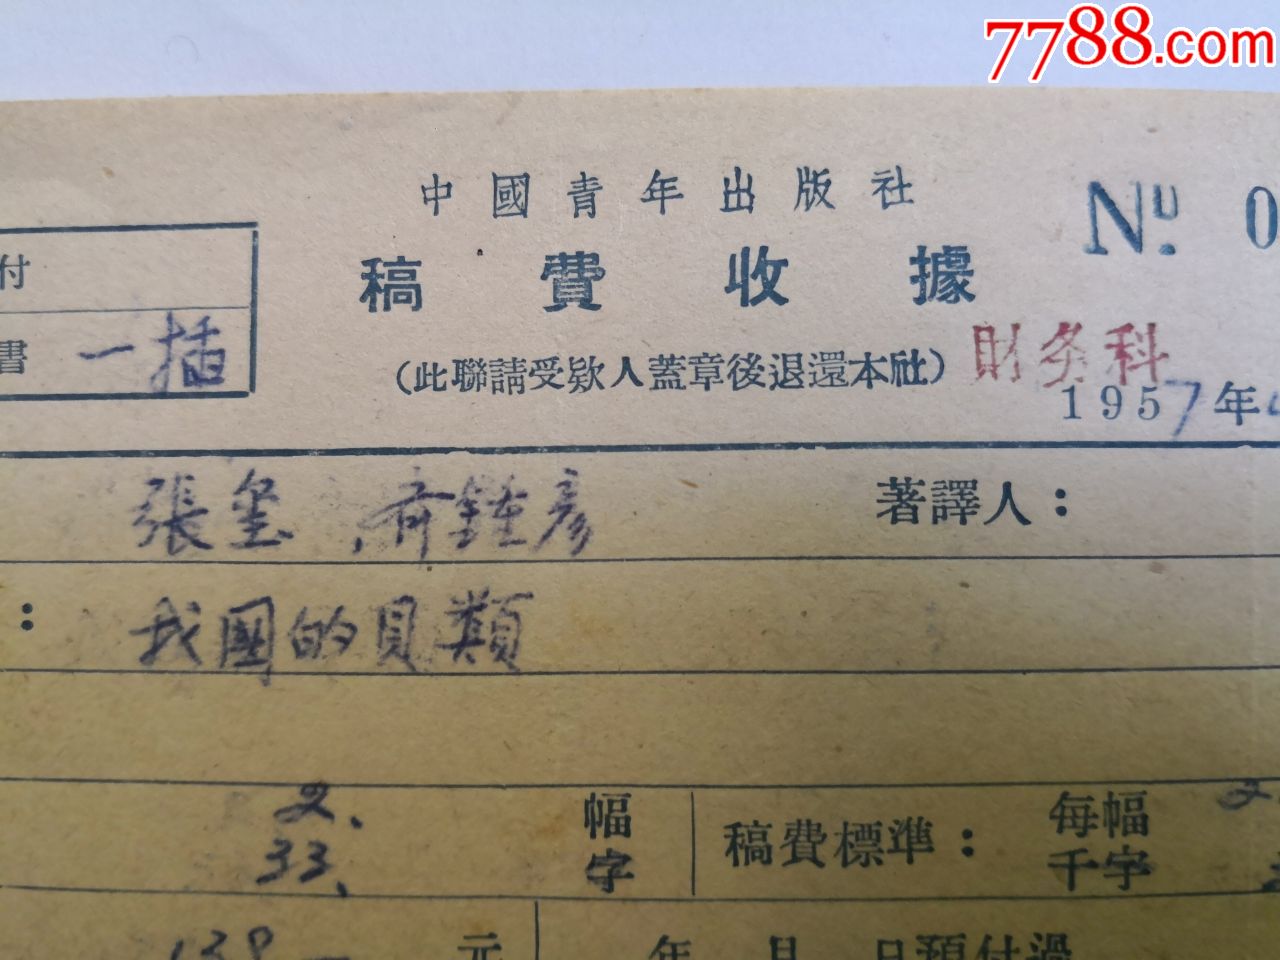 7788.com
中國青年出版社
№ 0
稿費收據
付
書 一插
(此聯請受欵人蓋章後退還本社)
財务科
1957年
張璽、齐鍾彦
著譯人：
： 我國的貝類
2. 幅
33. 字
稿費標準： 每幅 2
千字
138 元
年 月 日預付過